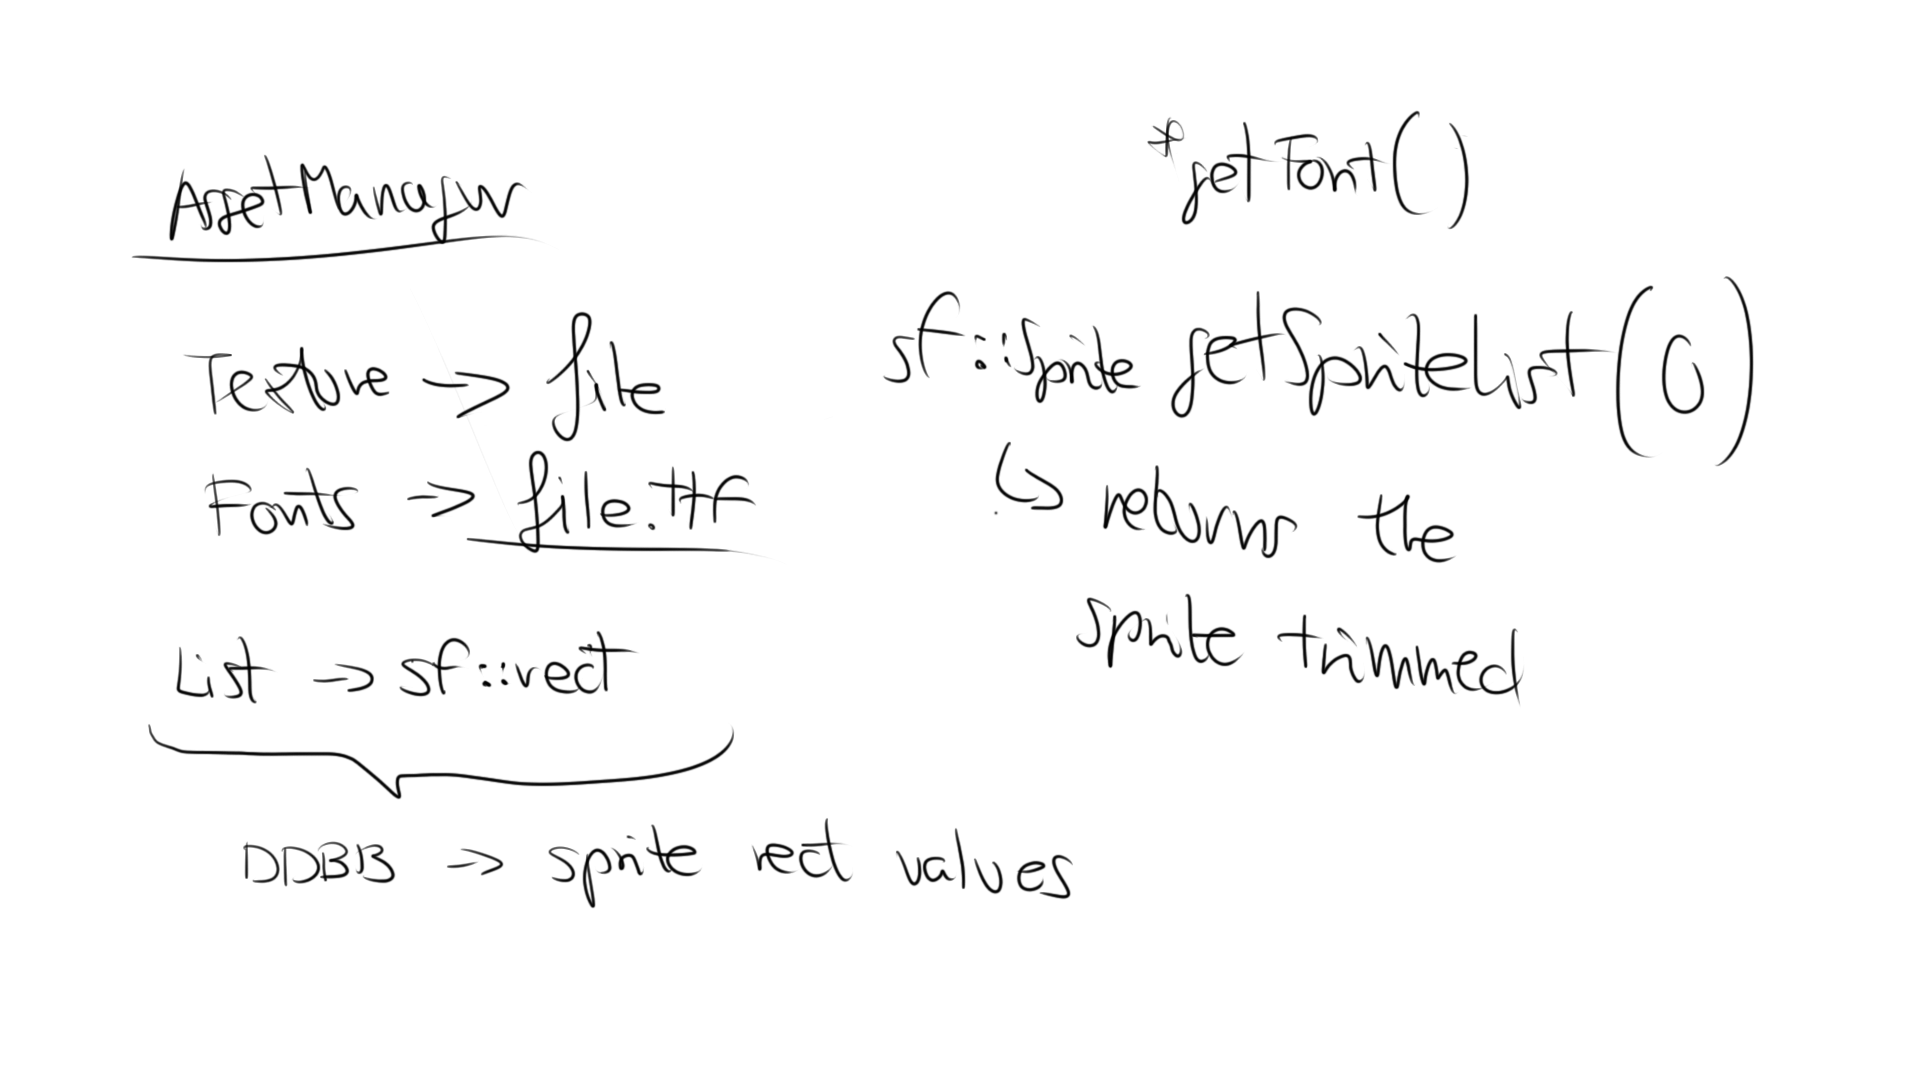 AssetManager
Texture -> file
Fonts -> file.ttf
List -> sf::rect
DDBB -> sprite rect values
*getFont()
sf::Sprite getSpriteList(0)
↳ returns the
sprite trimmed